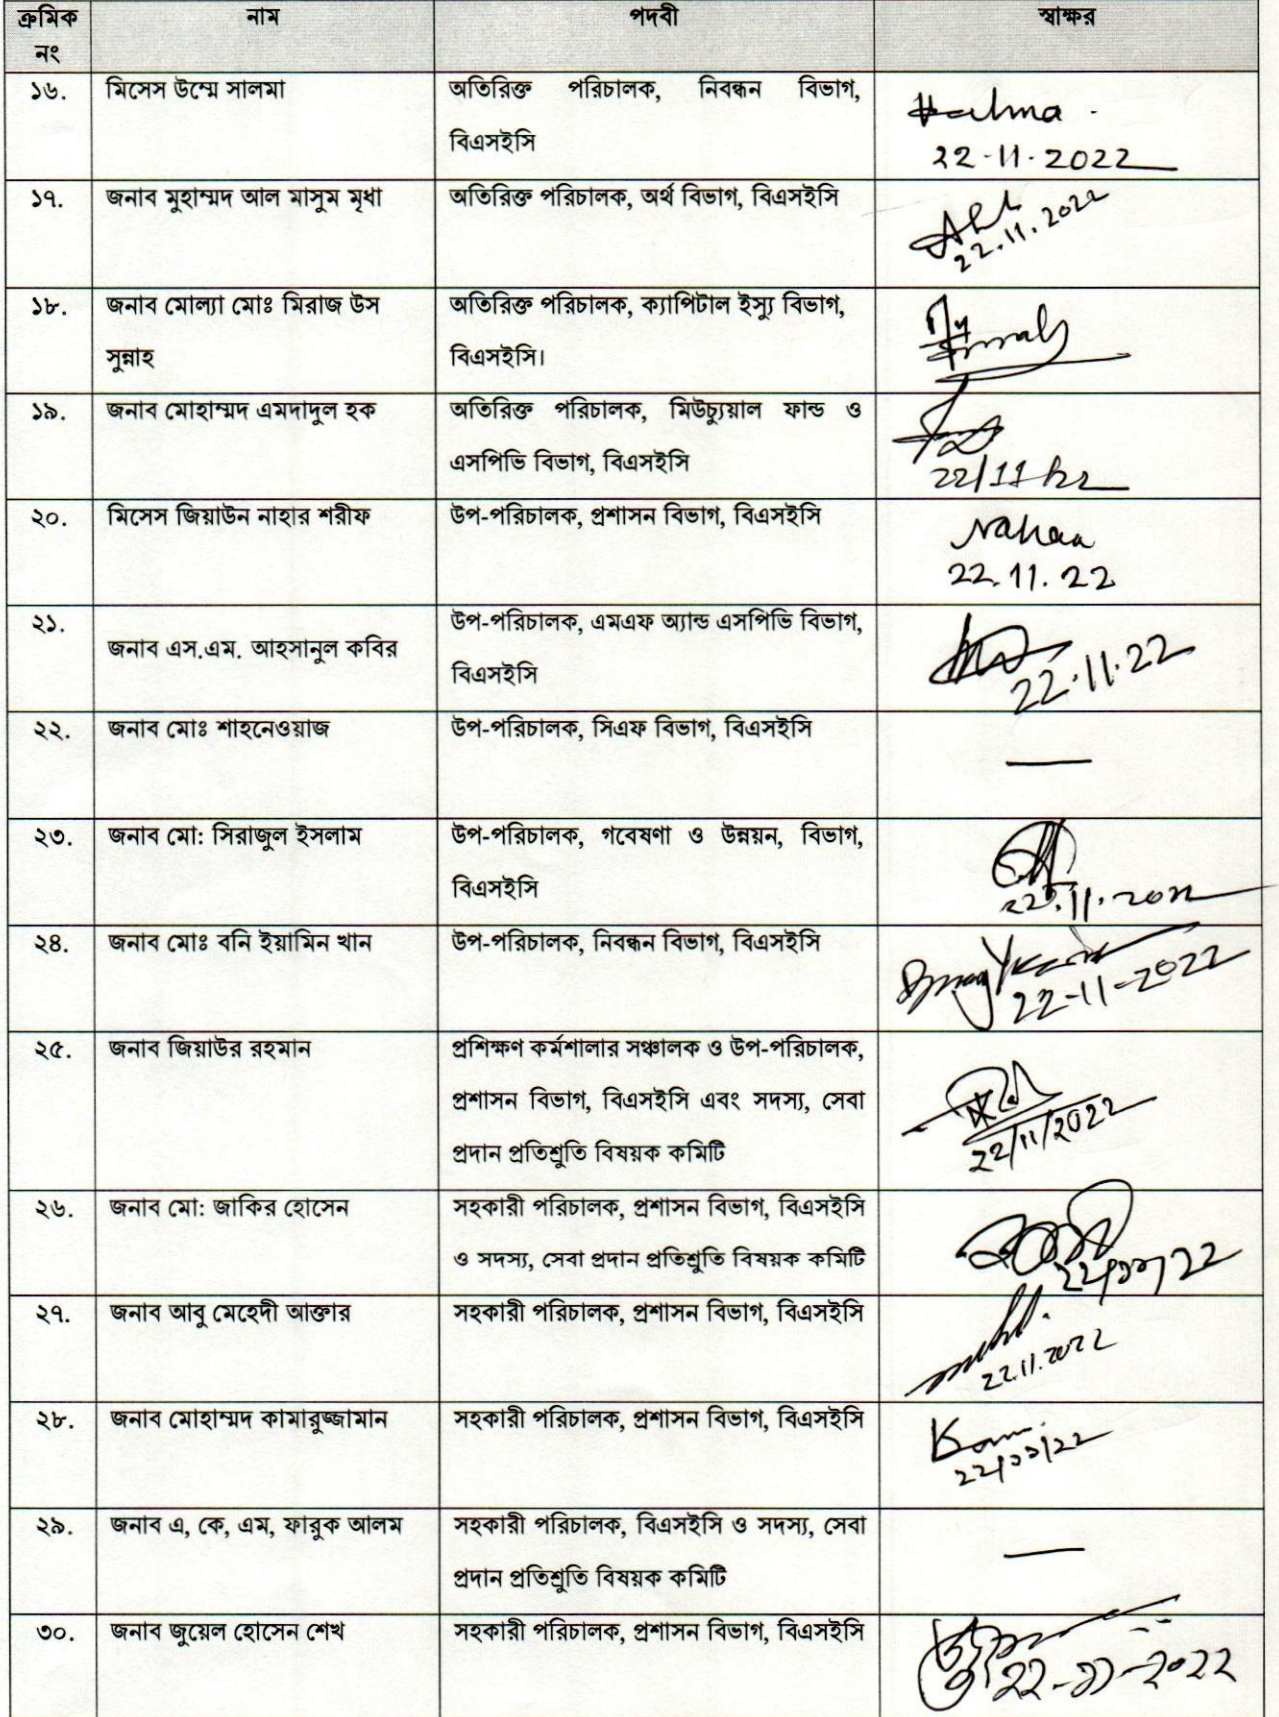 ক্রমিক নং	নাম	পদবী	স্বাক্ষর
১৬.	মিসেস উম্মে সালমা	অতিরিক্ত পরিচালক, নিবন্ধন বিভাগ,
বিএসইসি
22-11-2022
১৭.	জনাব মুহাম্মদ আল মাসুম মৃধা	অতিরিক্ত পরিচালক, অর্থ বিভাগ, বিএসইসি
22.11.2022
১৮.	জনাব মোল্যা মোঃ মিরাজ উস	অতিরিক্ত পরিচালক, ক্যাপিটাল ইস্যু বিভাগ,
সুন্নাহ	বিএসইসি।
১৯.	জনাব মোহাম্মদ এমদাদুল হক	অতিরিক্ত পরিচালক, মিউচ্যুয়াল ফান্ড ও
এসপিভি বিভাগ, বিএসইসি
২০.	মিসেস জিয়াউন নাহার শরীফ	উপ-পরিচালক, প্রশাসন বিভাগ, বিএসইসি
22.11.22
২১.	জনাব এস.এম. আহসানুল কবির	উপ-পরিচালক, এমএফ অ্যান্ড এসপিভি বিভাগ,
বিএসইসি	22.11.22
২২.	জনাব মোঃ শাহনেওয়াজ	উপ-পরিচালক, সিএফ বিভাগ, বিএসইসি	—
২৩.	জনাব মো: সিরাজুল ইসলাম	উপ-পরিচালক, গবেষণা ও উন্নয়ন, বিভাগ,
বিএসইসি
২৪.	জনাব মোঃ বনি ইয়ামিন খান	উপ-পরিচালক, নিবন্ধন বিভাগ, বিএসইসি
22-11-2022
২৫.	জনাব জিয়াউর রহমান	প্রশিক্ষণ কর্মশালার সঞ্চালক ও উপ-পরিচালক,
প্রশাসন বিভাগ, বিএসইসি এবং সদস্য, সেবা
প্রদান প্রতিশ্রুতি বিষয়ক কমিটি	22/11/2022
২৬.	জনাব মো: জাকির হোসেন	সহকারী পরিচালক, প্রশাসন বিভাগ, বিএসইসি
ও সদস্য, সেবা প্রদান প্রতিশ্রুতি বিষয়ক কমিটি
২৭.	জনাব আবু মেহেদী আক্তার	সহকারী পরিচালক, প্রশাসন বিভাগ, বিএসইসি
22.11.2022
২৮.	জনাব মোহাম্মদ কামারুজ্জামান	সহকারী পরিচালক, প্রশাসন বিভাগ, বিএসইসি
২৯.	জনাব এ, কে, এম, ফারুক আলম	সহকারী পরিচালক, বিএসইসি ও সদস্য, সেবা
প্রদান প্রতিশ্রুতি বিষয়ক কমিটি	—
৩০.	জনাব জুয়েল হোসেন শেখ	সহকারী পরিচালক, প্রশাসন বিভাগ, বিএসইসি